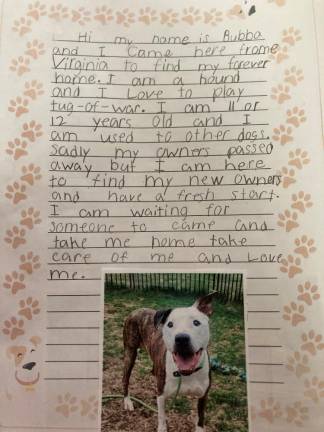 Hi my name is Bubba
and I Came here frome
Virginia to find my forever
home. I am a hound
and I Love to play
tug-of-war. I am 11 or
12 years old and I
am used to other dogs.
Sadly my owners passed
away but I am here
to find my new owners
and have a fresh start.
I am waiting for
someone to came and
take me home take
care of me and Love
me.